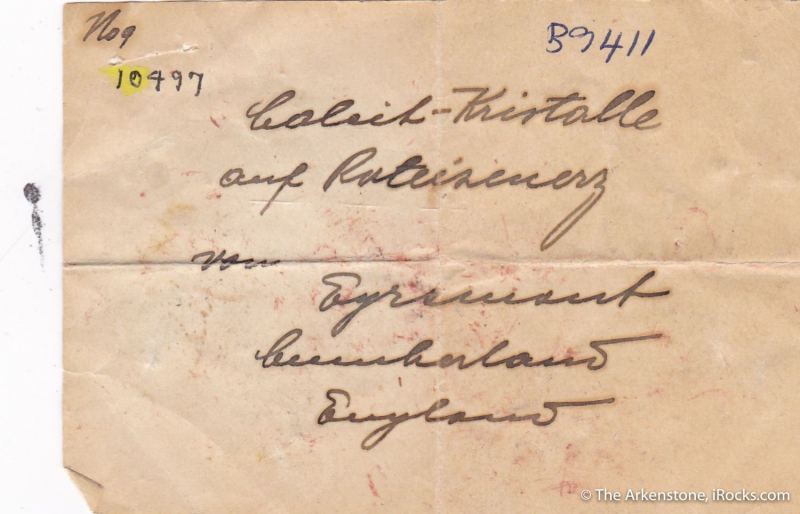 No 9
B9411
10497
Calcit-Kristalle
auf Roteisenerz
von
Egremont
Cumberland
England
© The Arkenstone, iRocks.com